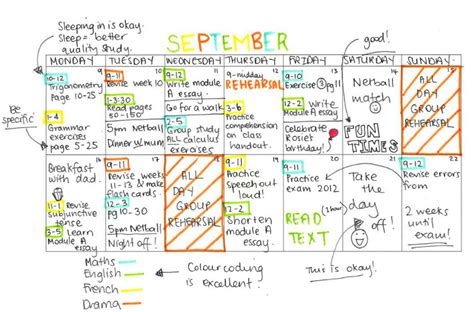 Sleeping in is okay.
Sleep = better
quality study.
SEPTEMBER
good!
MONDAY
TUESDAY
WEDNESDAY
THURSDAY
FRIDAY
SATURDAY
SUNDAY
Be
specific
9
10-12
Trigonometry
page 10-25
1-4
Grammar
exercises
page 5-25
10
9-11
Revise week 10
1-3:30
Read pages
50-150
5pm Netball
Dinner w/ mum
11
9-12
Write module
A essay.
Go for a walk
2-5
Group study
ALL calculus
exercises
12
9-midday
REHEARSAL
3-6
Practice
comprehension
on class
13
9-10
Exercise 3 pg 11
12-2
Write
module A essay.
Celebrate
Rosie's
birthday!
14
Netball
match
FUN
TIMES
15
ALL
DAY
GROUP
REHEARSAL
16
Breakfast
with dad.
11-1 Revise
subjunctive
tense
3-5 learn
Module A
essay
17
9-11
Revise weeks
11-13 & make
flash cards
12-3
pg 10-30
5pm Netball
Night off!
18
ALL
DAY
GROUP
REHEARSAL
19
9-11
Practice
speech out
loud!
12-3
Shorten
module A
essay.
20
9-11
Practice
exam 2012
READ
TEXT
21
Take
the
day
off!
22
9-12
Revise errors
from
2 weeks
until
exam!
Maths
English
French
Drama
Colour coding
is excellent.
This is okay!